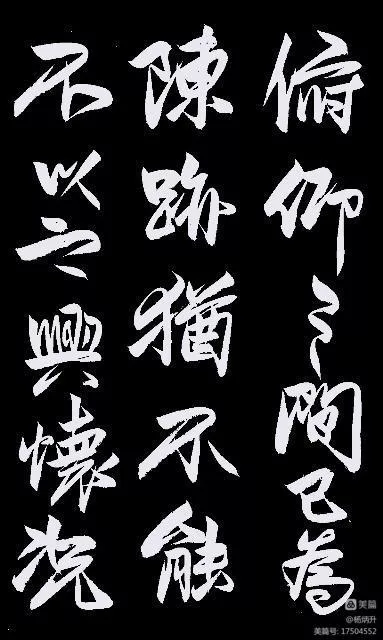 俯仰之間已為
陳跡猶不能
不以之興懷況
美篇
@杨炳升
美篇号: 17504552